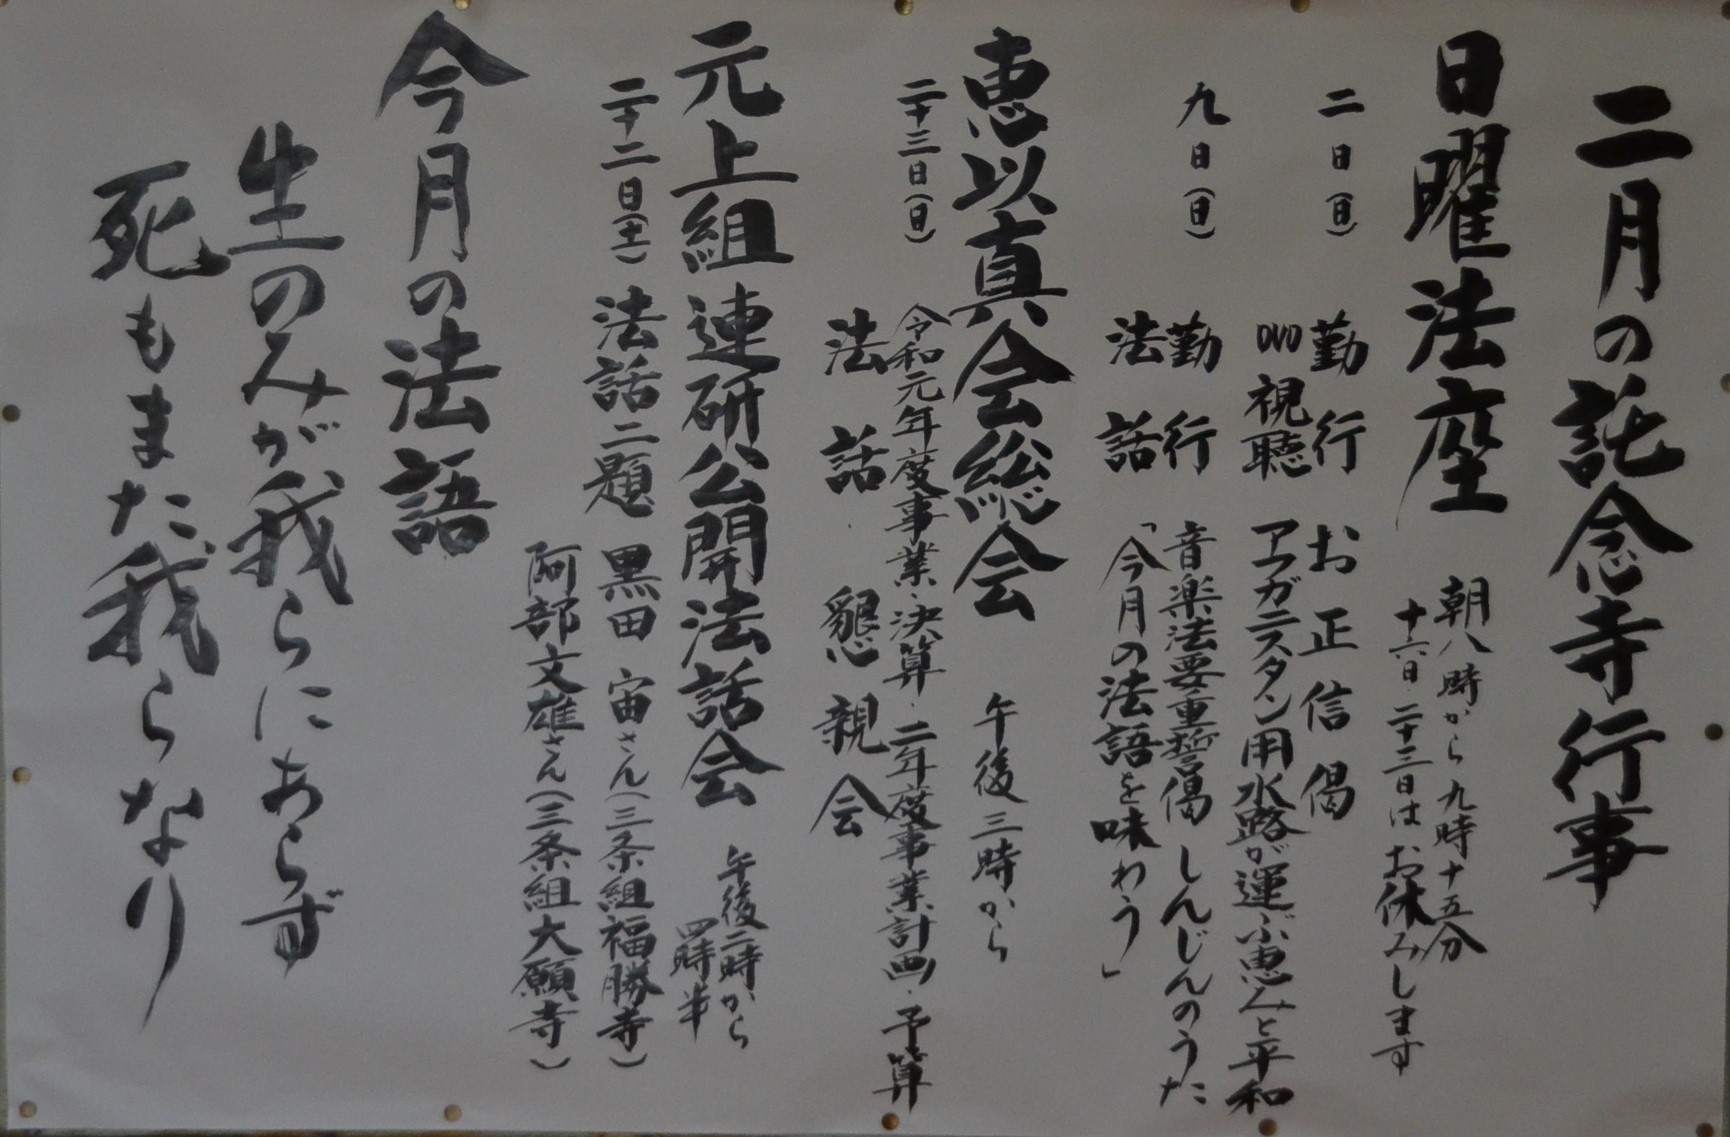 二月の託念寺行事
日曜法座 朝八時から九時十五分
十六日・二十三日はお休みします
二日(日) 勤行 お正信偈
DVD視聴 アフガニスタン用水路が運ぶ恵みと平和
九日(日) 勤行 音楽法要重誓偈 しんじんのうた
法話 「今月の法語を味わう」
恵以真会総会 午後三時から
二十三日(日) 令和元年度事業・決算・二年度事業計画・予算
法話・懇親会
元上組連研公開法話会 午後二時から
四時半
二十二日(土) 法話二題 黒田 宙さん(三条組福勝寺)
阿部文雄さん(三条組大願寺)
今月の法語
生のみが我らにあらず
死もまた我らなり